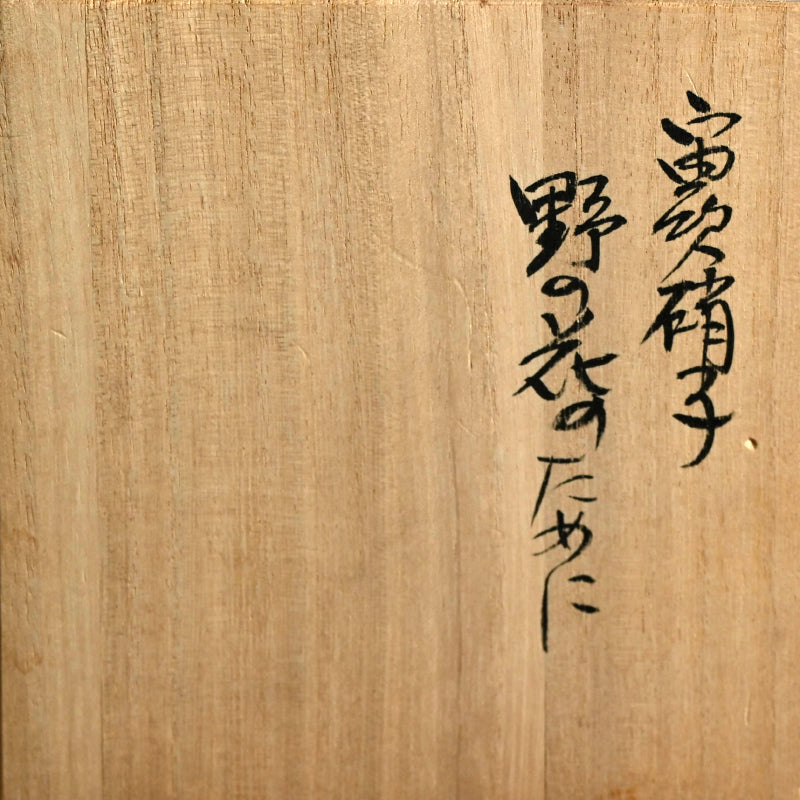 宙吹硝子
野の花のために